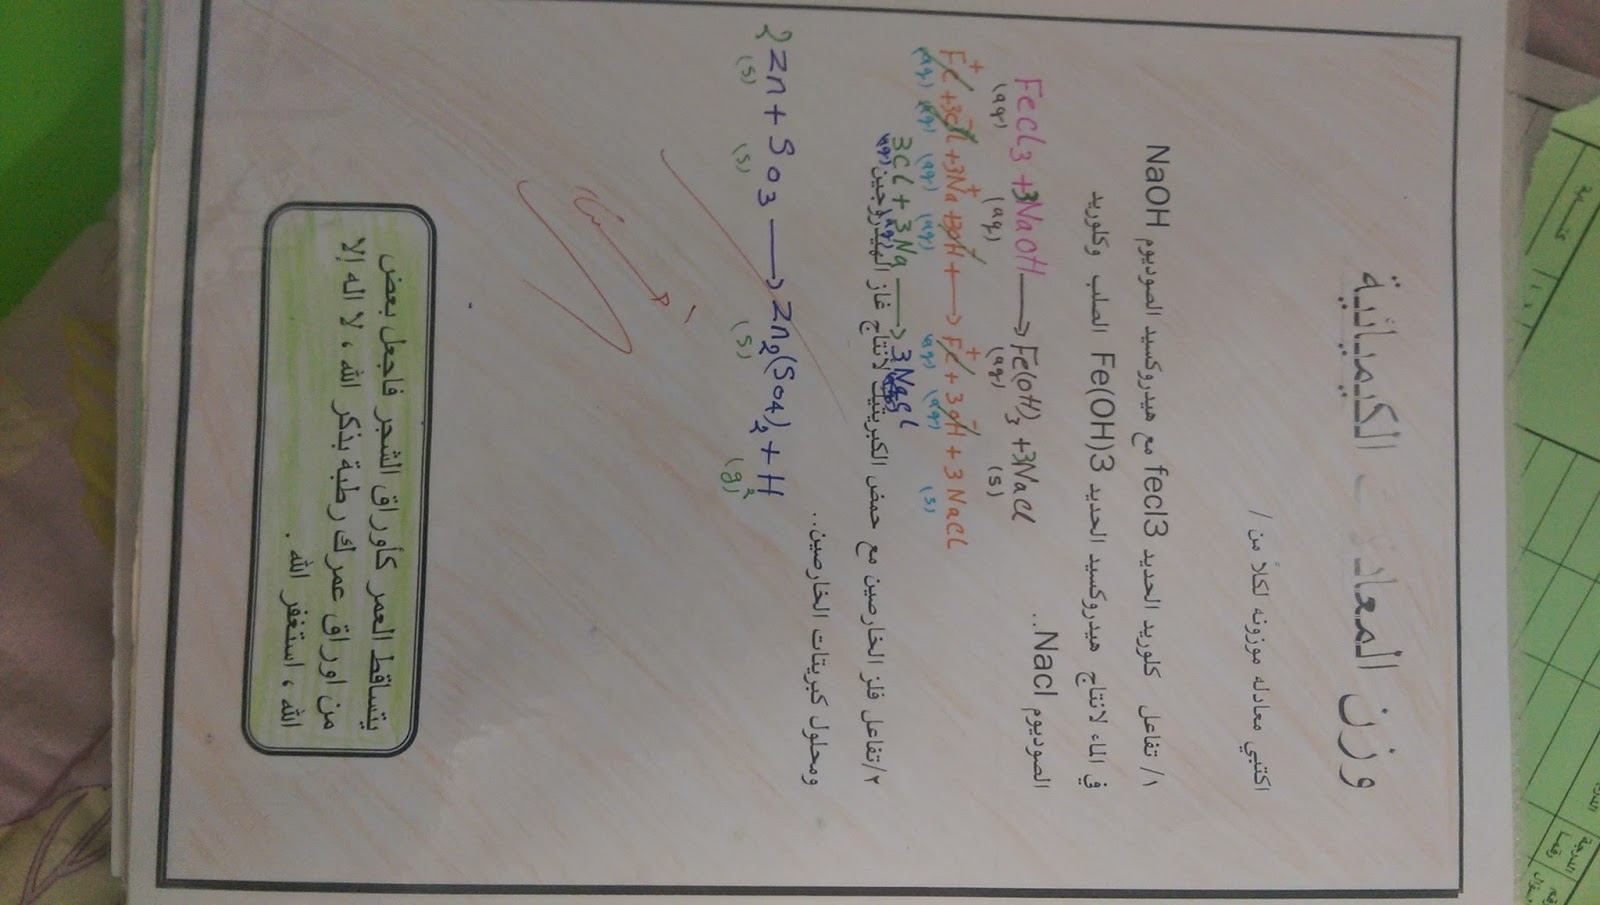 وزن المعادلات الكيميائية
اكتبي معادله موزونه لكلاً من /
١/ تفاعل كلوريد الحديد fecl3 مع هيدروكسيد الصوديوم NaOH
في الماء لانتاج هيدروكسيد الحديد Fe(OH)3 الصلب وكلوريد
الصوديوم Nacl ..
FeCl3 + 3NaOH → Fe(OH)3 + 3NaCl
(aq) (aq) (aq) (s)
Fe+ + 3Cl- + 3Na+ + 3OH- + → Fe+ + 3OH- + 3NaCl
(aq) (aq) (aq) (aq) (aq) (aq) (s)
3Cl + 3Na → 3NaCl
(aq) (aq)
٢/تفاعل فلز الخارصين مع حمض الكبريتيك لانتاج غاز الهيدروجين
ومحلول كبريتات الخارصين..
2Zn + SO3 → Zn2(SO4)2 + H2
(s) (s) (s) (g)
يتساقط العمر كأوراق الشجر فاجعل بعض
من اوراق عمرك رطبة بذكر الله ، لا اله إلا
الله ، استغفر الله .